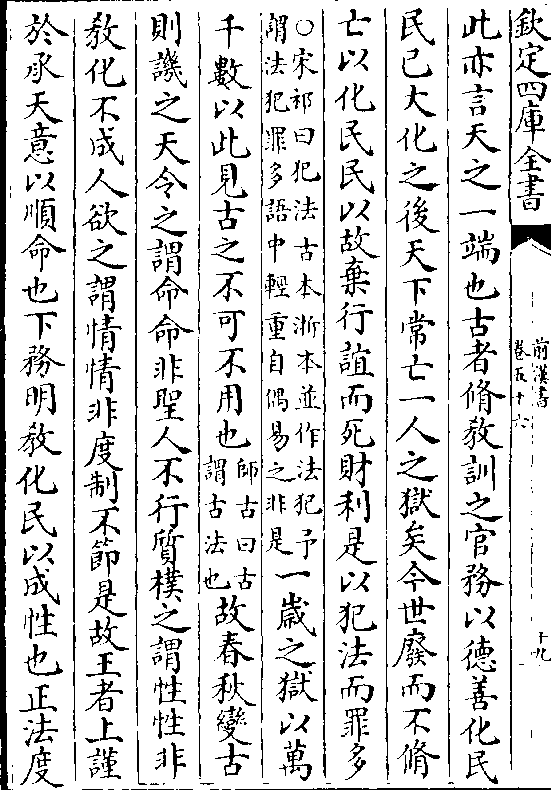 欽定四庫全書
前漢書
卷五十六
十九
此亦言天之一端也古者脩教訓之官務以德善化民
民已大化之後天下常亡一人之獄矣今世廢而不脩
亡以化民民以故棄行誼而死財利是以犯法而罪多
○宋祁曰犯法古本浙本並作法犯予
謂法犯罪多語中輕重自偶易之非是
一歲之獄以萬
千數以此見古之不可不用也
師古曰古
謂古法也
故春秋變古
則譏之天令之謂命命非聖人不行質樸之謂性性非
教化不成人欲之謂情情非度制不節是故王者上謹
於承天意以順命也下務明教化民以成性也正法度